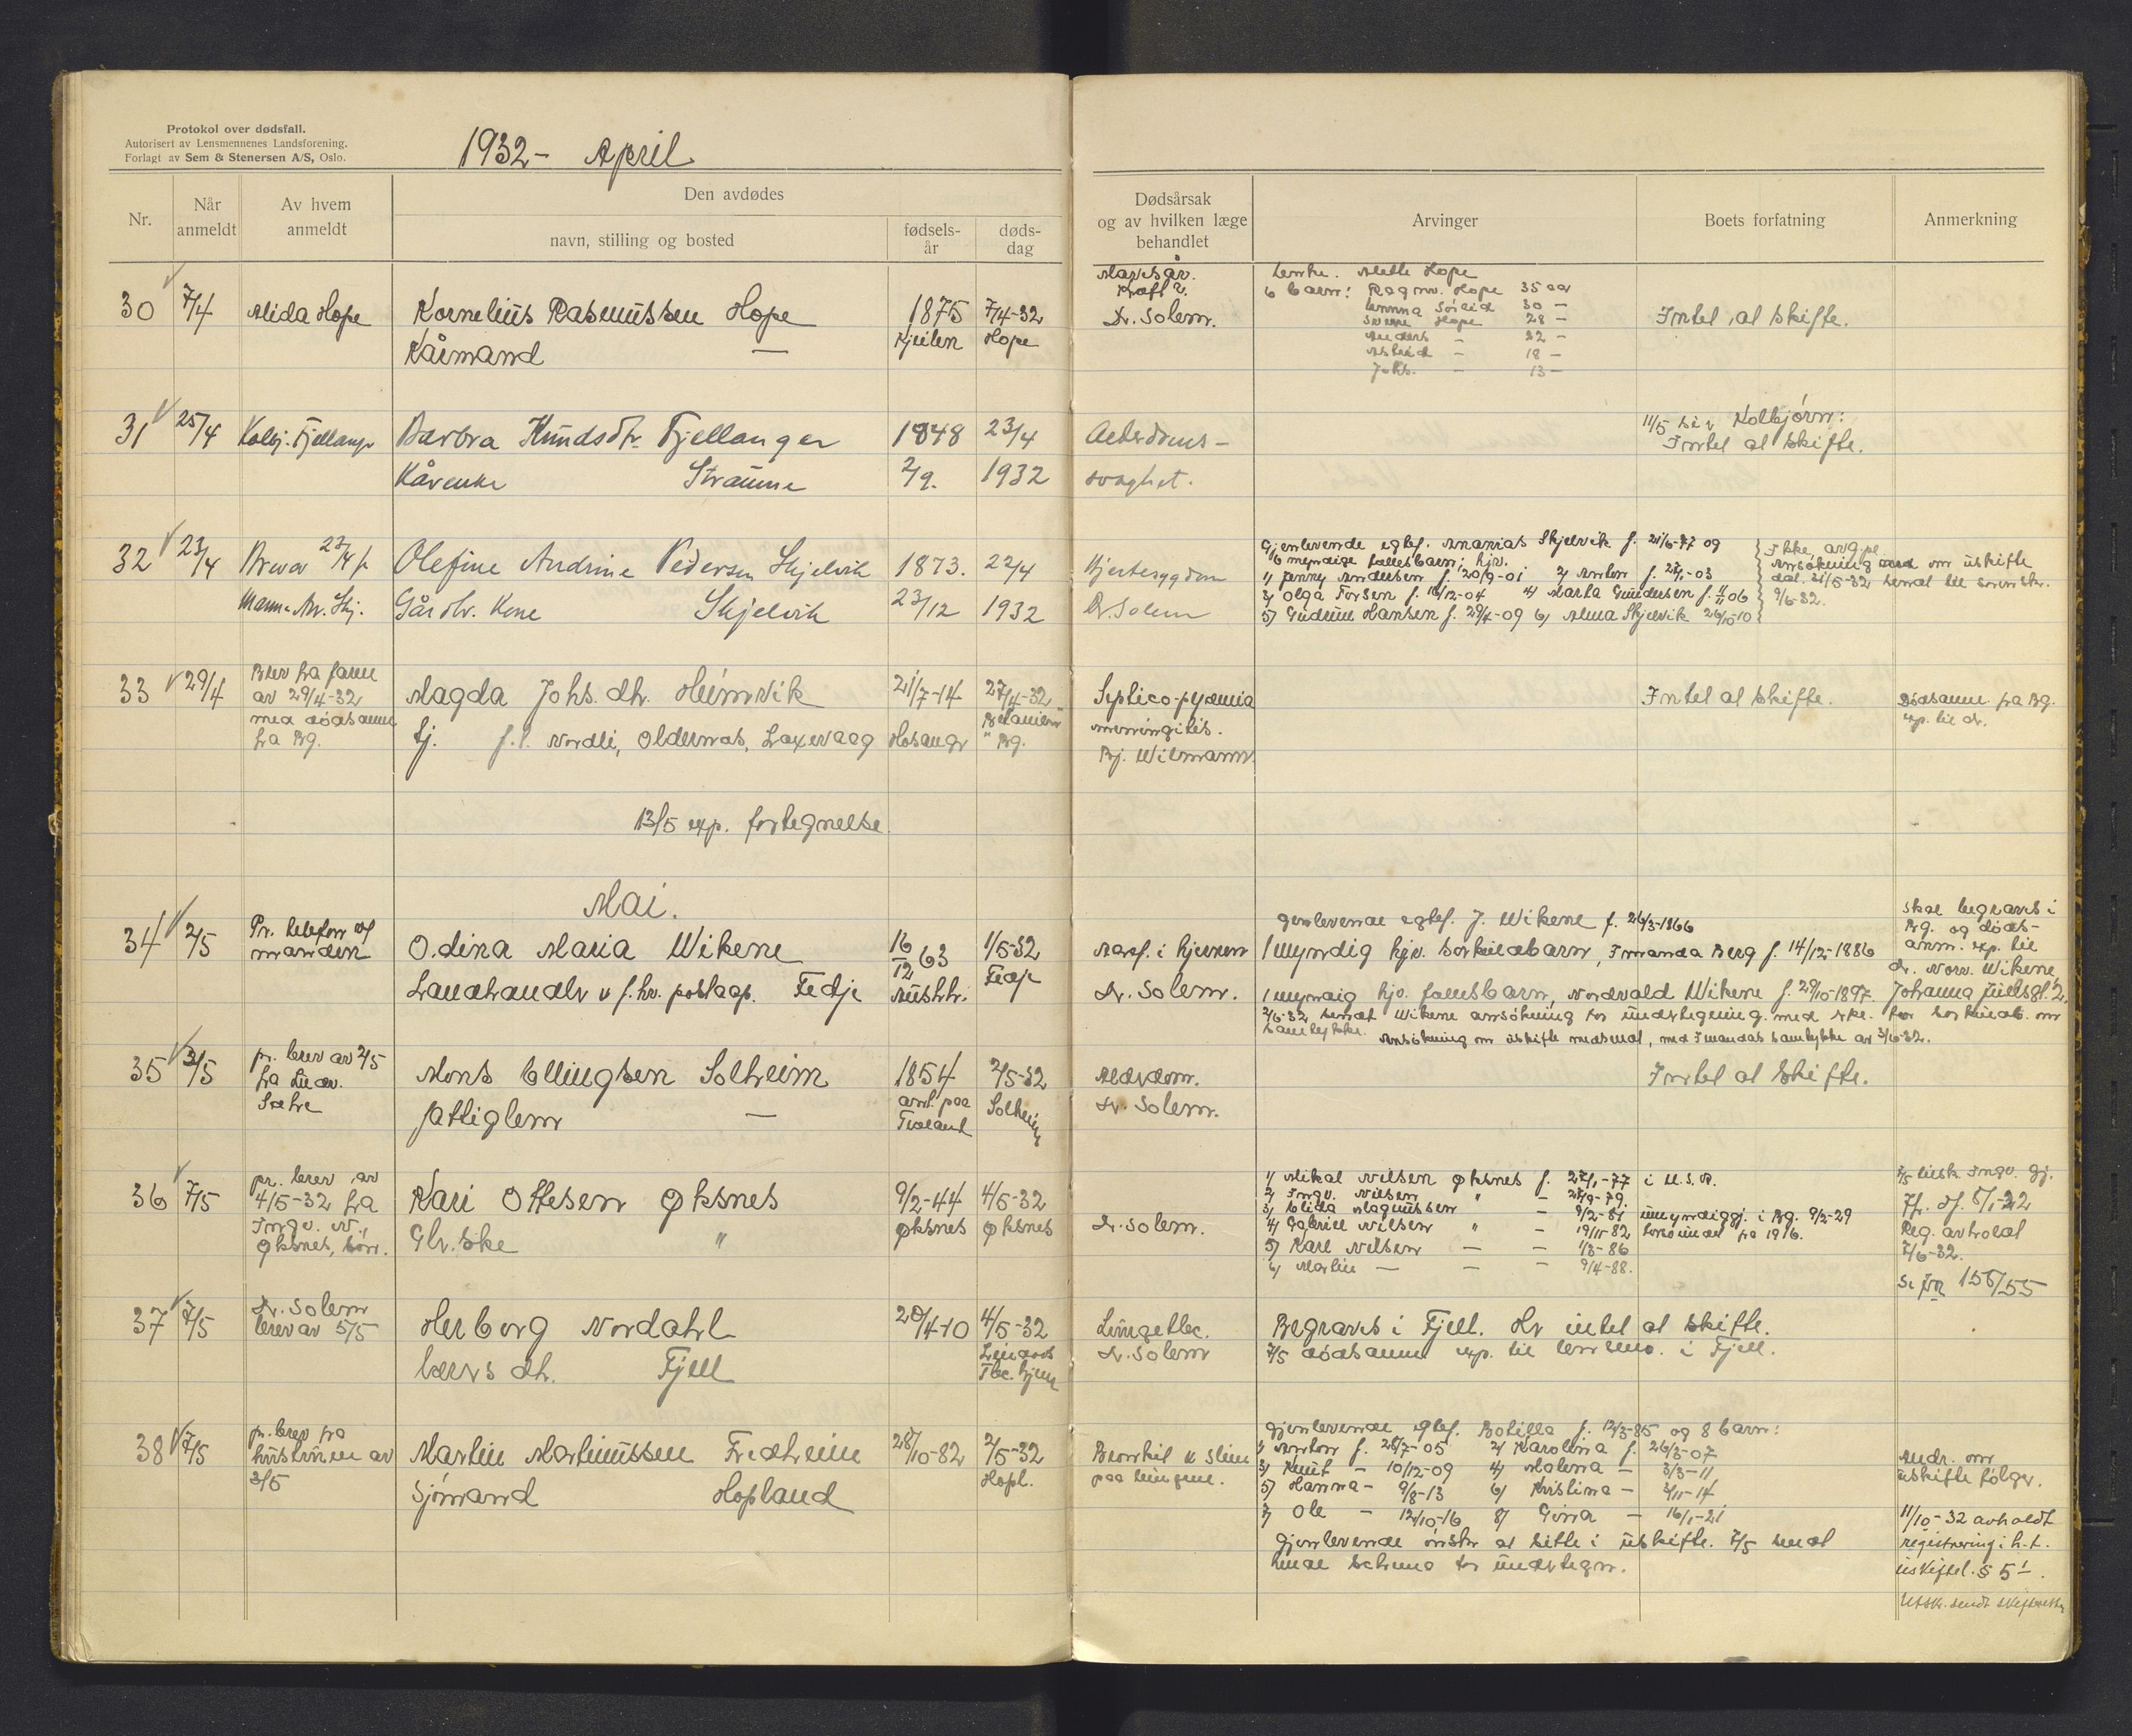 Protokol over dødsfall.
Autorisert av Lensmennenes Landsforening.
Forlagt av Sem & Stenersen A/S, Oslo.
1932 - April
Nr.
Når anmeldt
Av hvem anmeldt
Den avdødes
navn, stilling og bosted
fødsels-år
døds-dag
Dødsårsak og av hvilken læge behandlet
Arvinger
Boets forfatning
Anmerkning
30 7/4 Alida Hope Kornelius Rasmussen Hope 1875 7/4-32
Kårmand — Hope
Dr. Solem.
Enke. Mette Hope
6 barn: Ragnv. Hope 35 aar
Emma 30 —
Sverre Hope 28 —
Anders — 22 —
Astrid — 18 —
Johs. — 13 —
Intet at skifte.
31 25/4 Kolbj. Fjellanger Barbra Knudsdtr. Fjellanger 1848 23/4
Kårenke Straume 2/9. 1932
Alderdoms-
svaghet.
11/5 sier Kolbjörn:
Intet at skifte.
32 23/4 Brev av 23/4 f. Olefine Andrine Pedersen Skjelvik 1873. 22/4
Mann. An. Skj. Gårdbr. Kone Skjelvik 23/12 1932
Hjertesygdom
Dr. Solem
Gjenlevende egtef. Ananias Skjelvik f. 21/6-77 og
6 myndige fellesbarn, hjv.
1) Jenny Andersen f. 20/9-01 2) Anton f. 27/1-03
3) Olga Forsen f. 16/12-04 4) Marta Gundersen f. 4/11 06
5) Gudrun Hansen f. 29/4-09 6) Alma Skjelvik 26/10-10
Ikke avg.pl.
Ansøkning om uskifte
dat. 31/5-32 sendt til sorenskr.
9/6-32.
33 29/4 Brev fra
av 29/4-32
med dödsanm
fra Bg.
Magda Johs. dtr. Heimvik 21/7-14 27/4-32
tj. f.t. Nordli, Oldernes, Laxevaag Hosangr "Betanien" Bg.
Septico-pyæmia
meningitis.
Bj. Wilmann
Intet at skifte.
Dödsanm. fra Bg.
exp. til dr.
13/5 exp. fortegnelse.
Mai.
34 2/5 Pr. telefon af
manden
Odina Maria Wikene 16/12 63 1/5-32
Landhandlr u f.hv. postaap. Fedje Austrh. Fedje
Dr. Solem.
Gjenlevende egtef. J. Wikene f. 26/3-1866
1 myndig hjv. særkuldbarn, Imanda Berg f. 14/12-1886
1 myndig hjv. fellesbarn, Nordvald Wikene f. 29/10-1897.
2/5-32 sendt Wikene ansökning til undertegning med erkl. for særkuldb. om
samtykke. Ansökning om uskifte medsendt, med Imandas samtykke av 3/6-32.
Skal begraves i
Bg. og døds-
anm. exp. til
dr. Norv. Wikene,
35 3/5 pr. brev av 2/5
fra
Sætre
Mons Ellingsen Solheim 1854 2/5-32
fattiglem — Solheim
Alderdom.
Dr. Solem.
Intet at skifte.
36 7/5 pr. brev av
4/5-32 fra
Ingv. N.
Øksnes, sön.
Kari Ottesen Øksnes 9/2-44 4/5-32
Gbr.ske " Øksnes Øksnes
Dr. Solem.
1) Mikal Nilsen Øksnes f. 27/1-77 i U.S.A.
2) Ingv. Nilsen " — 29/9-79
3) Elida Magnussen — 9/2-81 umyndiggj. i Bg. 9/2-29
4) Gabriel Nilsen " — 19/11-82 forsvundet fra 1916.
5) Karl Nilsen — — 1/3-86
6) Martin — — — 9/4-88.
Reg. avholdt
7/6-32.
156/55
37 7/5 Dr. Solem
brev av 5/5
Herborg Nordahl 20/4-10 4/5-32
Lars dtr. Fjell
Lungetbc.
Dr. Solem
Begraves i Fjell. Hr intet at skifte.
7/5 dødsanm exp. til lensm. i Fjell.
38 7/5 pr. brev fra
hustruen av
3/5
Martin Martinussen Fredheim 28/10-82 2/5-32
Sjömand Hopland Hopl.
Bronkit u slim
paa lungene.
Gjenlevende egtef. Botilla f. 12/3-85 og 8 barn:
1) Anton f. 28/7-05 2) Karolina f. 26/3-07
3) Knut — 10/12-09 4) Malena — 3/3-11
5) Hanna — 9/8-13 6) Kristina — 3/11-14
7) Ole — 12/10-16 8) Gina — 16/1-21
Gjenlevende önskr at sitte i uskifte. 7/5 sendt
hende schema til undertegn.
Andr. om
uskifte følger.
11/10-32 avholdt
registrering i h.t.
uskiftel. § 5
Utskr. sendt skifteretten